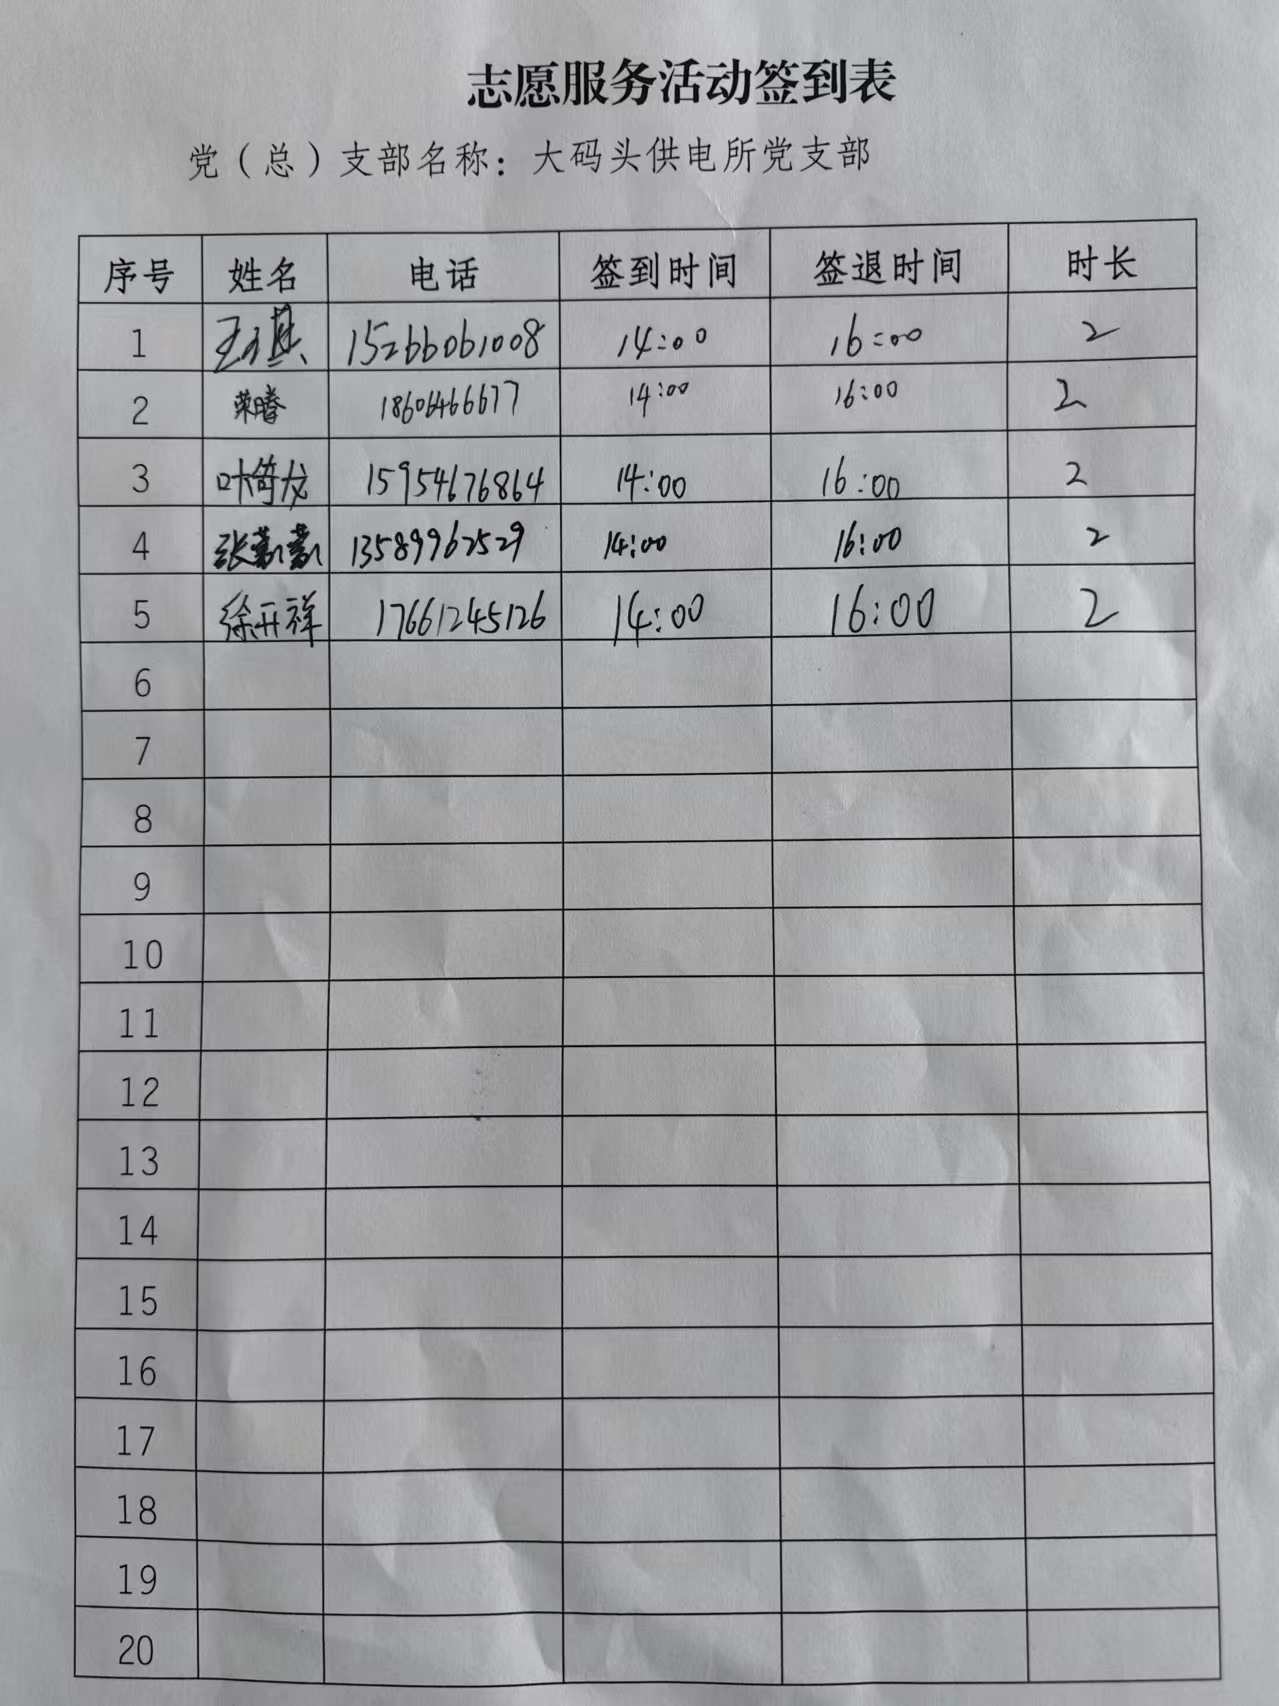 志愿服务活动签到表
党（总）支部名称：大码头供电所党支部
序号 姓名 电话 签到时间 签退时间 时长
1 王琪 15266061008 14:00 16:00 2
2 荣腾 18606466677 14:00 16:00 2
3 叶倚龙 15954676864 14:00 16:00 2
4 张蒙蒙 13589962529 14:00 16:00 2
5 徐开祥 17661245126 14:00 16:00 2
6
7
8
9
10
11
12
13
14
15
16
17
18
19
20